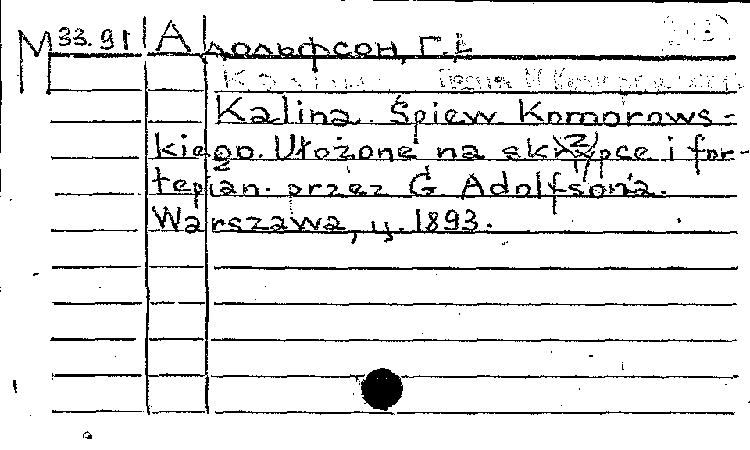 М 33.91 Адольфсон, Г.
Kalina. Śpiew Komorows-
kiego. Ułożone na skrzypce i for-
tepian. przez G. Adolfsona.
Warszawa, ц. 1893.